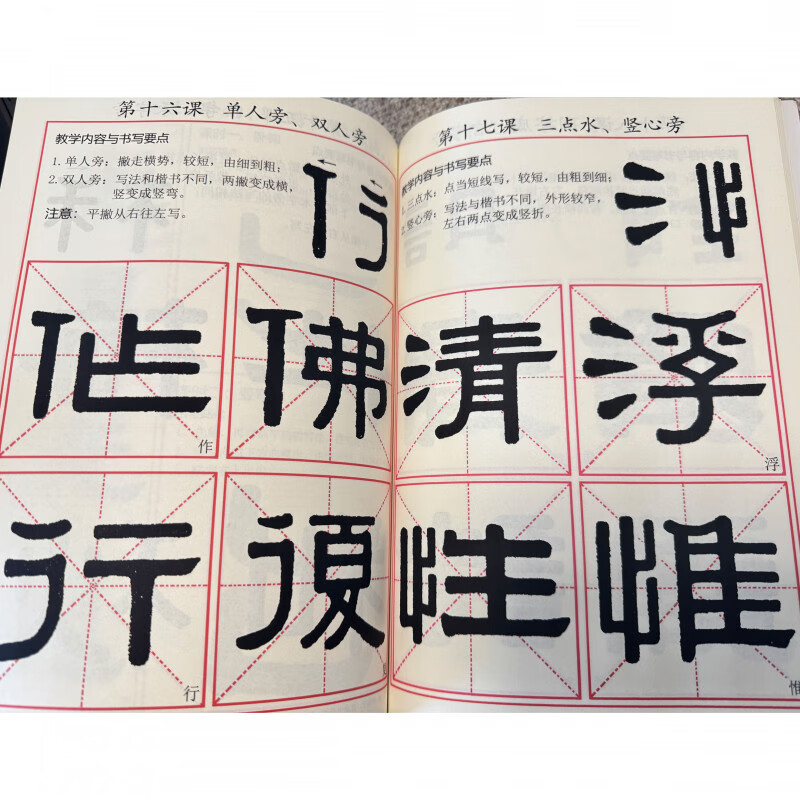 第十六课 单人旁、双人旁
教学内容与书写要点
1. 单人旁：撇走横势，较短，由细到粗；
2. 双人旁：写法和楷书不同，两撇变成横，
竖变成竖弯。
注意：平撇从右往左写。
亻彳
作 佛
作
行 復
行
第十七课 三点水、竖心旁
教学内容与书写要点
三点水：点当短线写，较短，由粗到细；
竖心旁：写法与楷书不同，外形较窄，
左右两点变成竖折。
氵忄
清 浮
浮
性 惟
惟